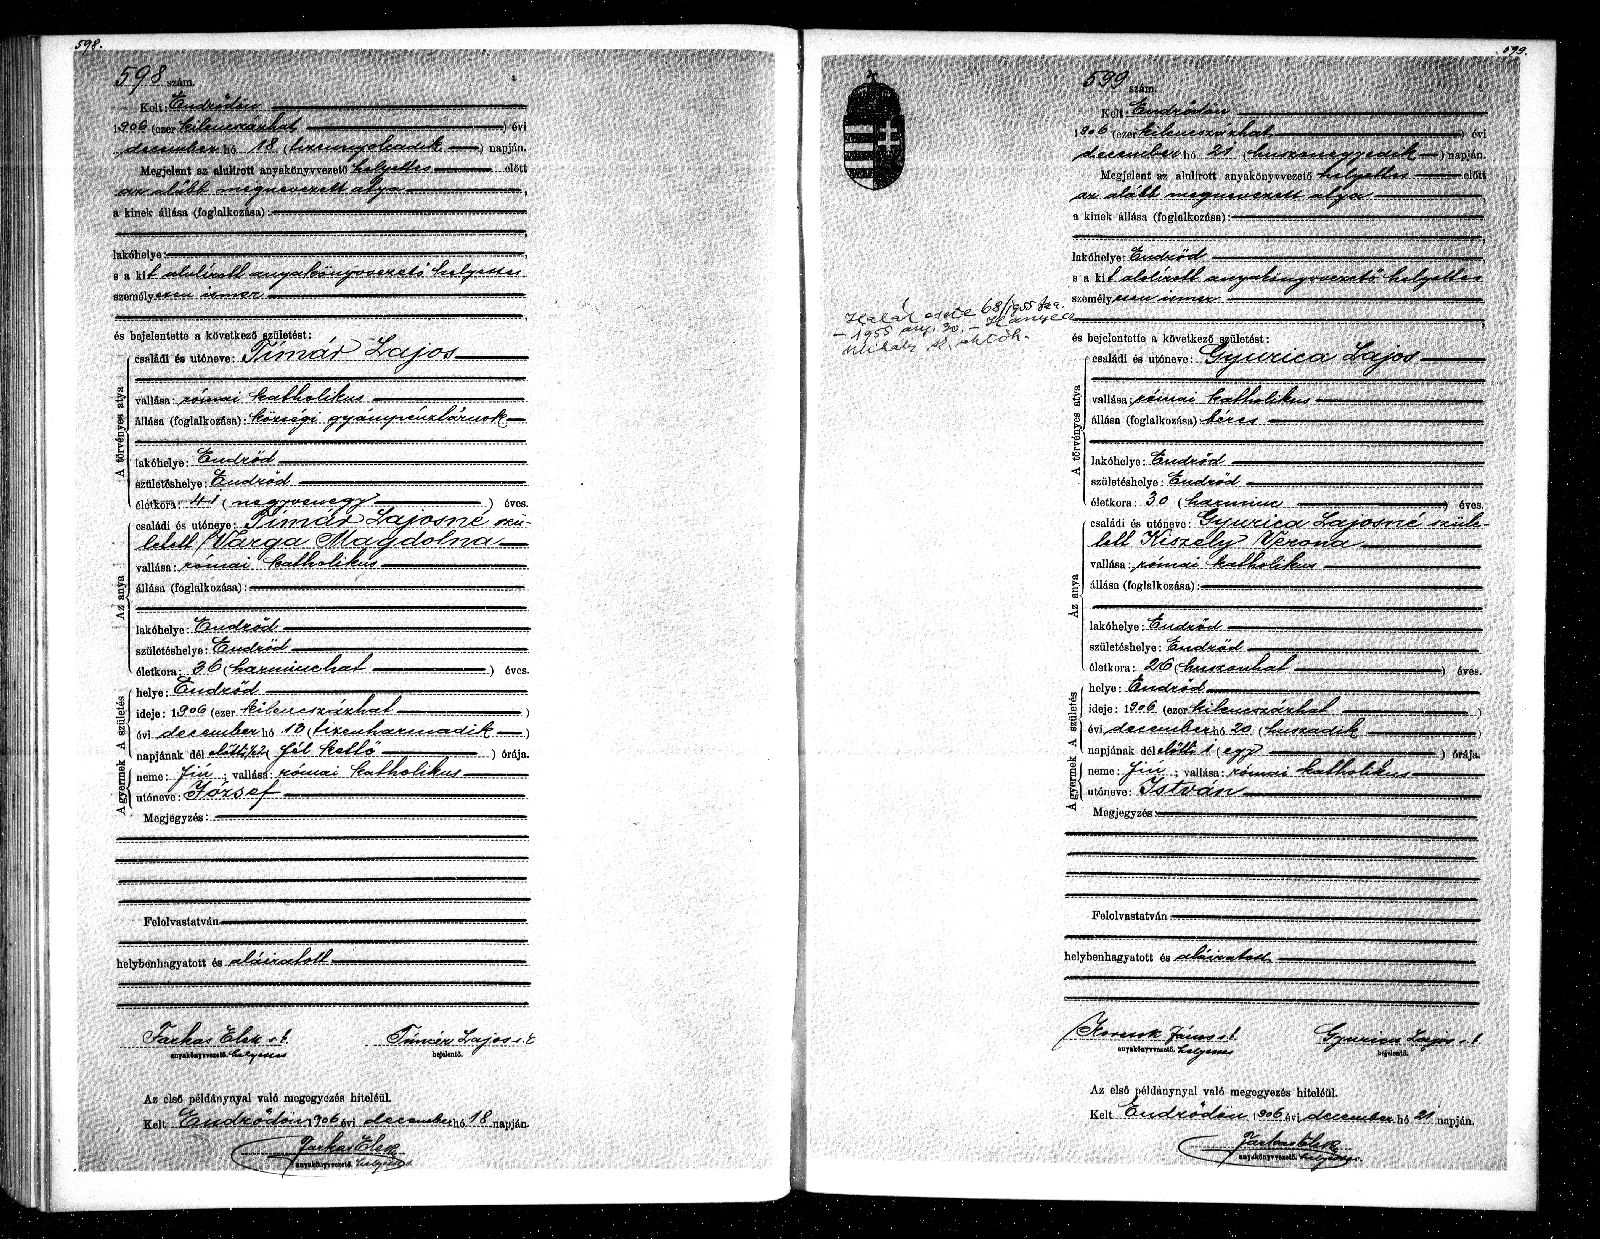 598.
598 szám.
Kelt: Endrődön
1906 (ezer kilenczázhat) évi
december hó 18 (tizennyolcadik) napján.
Megjelent az alulirott anyakönyvvezető helyettes előtt
az alább megnevezett atya,
a kinek állása (foglalkozása):
lakóhelye:
s a kit alulírott anyakönyvvezető helyettes
személyesen ismer
és bejelentette a következő születést:
A törvényes atya
családi és utóneve: Tímár Lajos
vallása: római katholikus
állása (foglalkozása): községi gyámpénztárnok
lakóhelye: Endrőd
születéshelye: Endrőd
életkora: 41 (negyvenegy) éves.
Az anya
családi és utóneve: Tímár Lajosné szü-
letett Varga Magdolna
vallása: római katholikus
állása (foglalkozása):
lakóhelye: Endrőd
születéshelye: Endrőd
életkora: 36 (harminchat) éves.
A gyermek A születés
helye: Endrőd
ideje: 1906 (ezer kilencszázhat)
évi december hó 13 (tizenharmadik)
napjának dél előtti 1/2 2 (fél kettő) órája.
neme: fiú; vallása: római katholikus
utóneve: József
Megjegyzés:
Felolvastatván
helybenhagyatott és aláiratott
Farkas Elek s. k. Tímár Lajos s. k.
anyakönyvvezető. helyettes bejelentő.
Az első példánynyal való megegyezés hiteléül.
Kelt Endrődön 1906 évi december hó 18 napján.
Farkas Elek
anyakönyvvezető. helyettes
599.
599 szám.
Kelt: Endrődön
1906 (ezer kilencszázhat) évi
december hó 21 (huszonegyedik) napján.
Megjelent az alulirott anyakönyvvezető helyettes előtt
az alább megnevezett atya
a kinek állása (foglalkozása):
lakóhelye: Endrőd
s a kit alulírott anyakönyvvezető helyettes
személyesen ismer
Halál esete 68/1955 fsz.
1955 aug. 30.
és bejelentette a következő születést:
A törvényes atya
családi és utóneve: Gyurica Lajos
vallása: római katholikus
állása (foglalkozása): béres
lakóhelye: Endrőd
születéshelye: Endrőd
életkora: 30 (harminc) éves.
Az anya
családi és utóneve: Gyurica Lajosné szüle-
tett Kiszely Verona
vallása: római katholikus
állása (foglalkozása):
lakóhelye: Endrőd
születéshelye: Endrőd
életkora: 26 (huszonhat) éves.
A gyermek A születés
helye: Endrőd
ideje: 1906 (ezer kilencszázhat)
évi december hó 20 (huszadik
napjának dél előtti 1 (egy) órája.
neme: fiú; vallása: római katholikus
utóneve: István
Megjegyzés:
Felolvastatván
helybenhagyatott és aláiratott
János s. k. Gyurica Lajos s. k.
anyakönyvvezető. helyettes bejelentő.
Az első példánynyal való megegyezés hiteléül.
Kelt Endrődön 1906 évi december hó 21 napján.
Farkas Elek
anyakönyvvezető. helyettes.